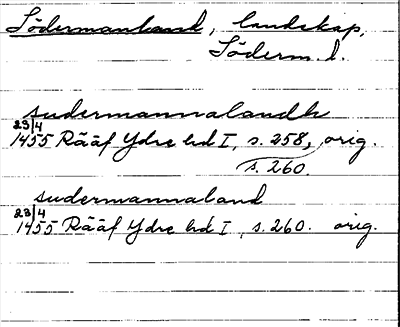 Södermanland, landskap,
Söderm. l.
sudermannalandh
23/4
1455 Rääf Ydre hd I, s. 258, orig.
s. 260.
sudermannaland
23/4
1455 Rääf Ydre hd I, s. 260. orig.